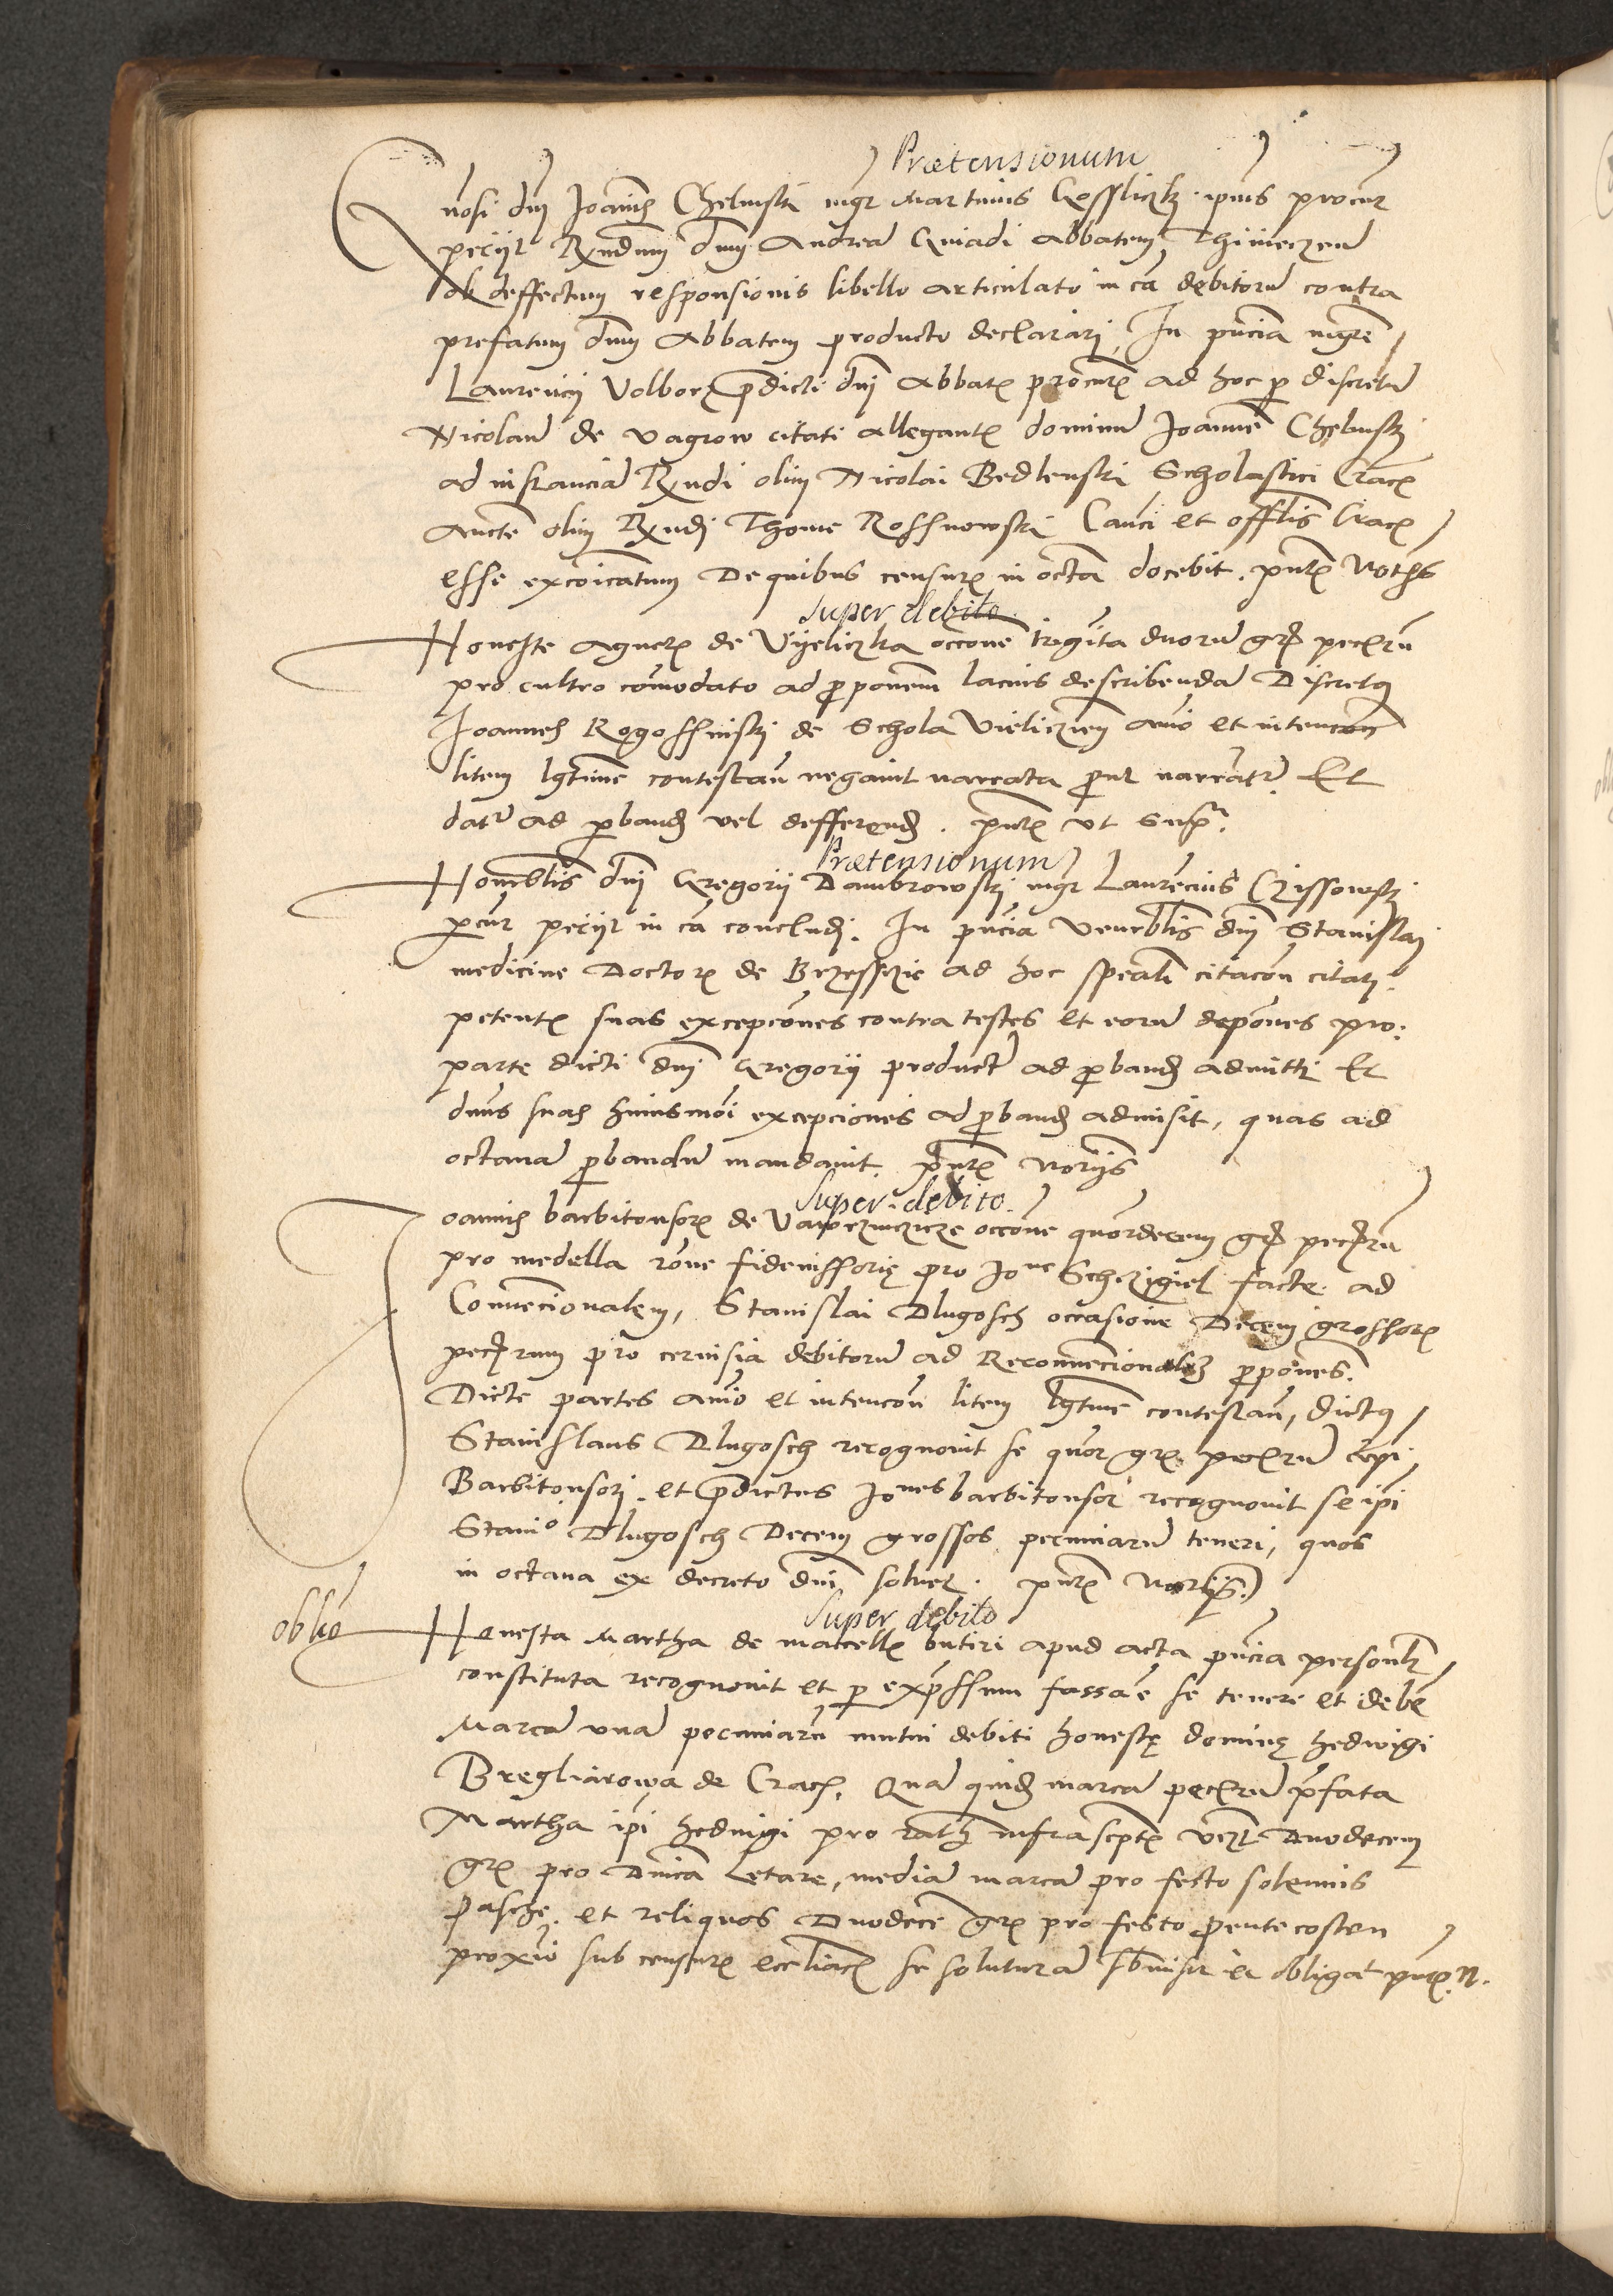 Prætensionum
Gnosi dnj Joannis Chelmski mgr Martinus Gossliczki ipius procur
peciit Rxndum dnm Andream Gniadi Abbatem Thinieczen
ob deffectum responsionis libello articulato in ca debitoru contra
prefatum dnm Abbatem producto declarari, In pncia mgri
Laurencij Volborz pdicti dnj Abbatis procuris ad hoc p discretu
Nicolaum de vagrow citati allegantis dominu Joannem Chelmskj
ad instancia Rxndi olim Nicolai Bedlenski Scholastici Crac
aucte olim Rxndj Thome Rossnowski Canci et offlis Crac
esse excoicatum De quibus censuris in octa docebit. pntes noths
Super debito
Honeste Agnetis de Vyeliczka occone triginta duoru gr pecru
pro cultro comodato ad pponem lacius describenda Discretus
Joannes Rogossinskj de Schola Vielicziem anio et intencon
litem lgtime contestan negauit narrata put narrantr. Et
datr ad pband vel defferend. pntes vt supra.
Prætensionum
Honorablis dnj Gregorij Dambrowskj mgr Laurencius Czissowskj
pcur peciit in ca concludj. In pncia venerablis dnj Stanislaj
medicine Doctoris de Brzessczie ad hoc speali citacon citatj
petentis suas excepcones contra testes et eoru depones pro
parte dicti dnj Gregorij product ad pband admitti Et
dnus suas huiusmoi excepciones ad pband admisit, quas ad
octaua pbandu mandauit. pntes noriis
Super debito.
Joannis barbitonsoris de occone quordecem gr pecru
pro medella rone fideiussorie pro Jone Schczigiel facte ad
Conuecionalem, Stanislai Dlugosch occasione Decem grossoru
pecrum pro ceruisia debitoru ad Reconuecionalem ppones.
Dicte partes anio et intencon litem lgtime contestan, dictus
Stanislaus Dlugosch recognouit se quor gr pecru ipi
Barbitonsorj. et pdictus Jones barbitonsor recognouit se ipi
Stanio Dlugosch Decem grossos pecuniaru teneri, quos
in octaua ex decreto dnj soluet. pntes
oblio
Super debito
Honesta Martha de macello butiri apud acta pncia personlr
constituta recognouit et p expssum fassa e se tenere et debe
Marca vna pecuniaru mutui debiti honeste domine hedwigi
Bregliarowa de Crac. Qua quid marca pecru pfata
Martha ipi hedwigi pro rath infrascptis vizt Duodecem
gr pro Dnica Letare, media marca pro festo solemnis
Pasche. et reliquos Duodece gr pro festo Pentecosten
proxio sub censuris eccliacis se solutura sbmisit et obligat pntes. n.